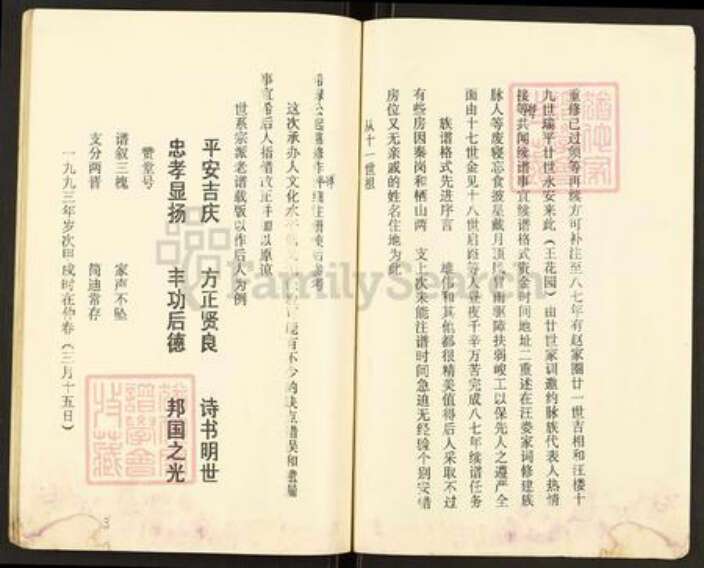 重修已过频等再续方可补注至八七年有赵家圈廿一世吉相和汪楼十
九世瑞平廿世永安来此（王花园）由廿世家训邀约脉族代表人热情
接等共闻续谱事宜续谱格式资金时间地址二重述在汪娄家词修建族
脉人等废寝忘食披星戴月顶风冒雨驱障扶弱峻工以保先人之遵产全
面由十七世金见十八世启路等人昼夜千辛万苦完成八七年续谱任务
族谱格式先进序言 雄伟和其他都很精美值得后人采取不过
有些房因秦岗和栖山两 支上次未能注谱时间急迫无经验个别安错
房位又无亲戚的姓名住地为此
从十一世根
这次承办人文化水
有不少的缺点错误和遗漏
事宜希后人指错改正并加以原谅
世系宗派老谱载版以作后人为例
平安吉庆 方正贤良 诗书明世
忠孝显扬 丰功后德 邦国之光
赞堂号
谱叙三槐 家声不坠
支分两晋 简迪常存
一九九三年岁次 戌时在仲春（三月十五日）
3
FamilySearch